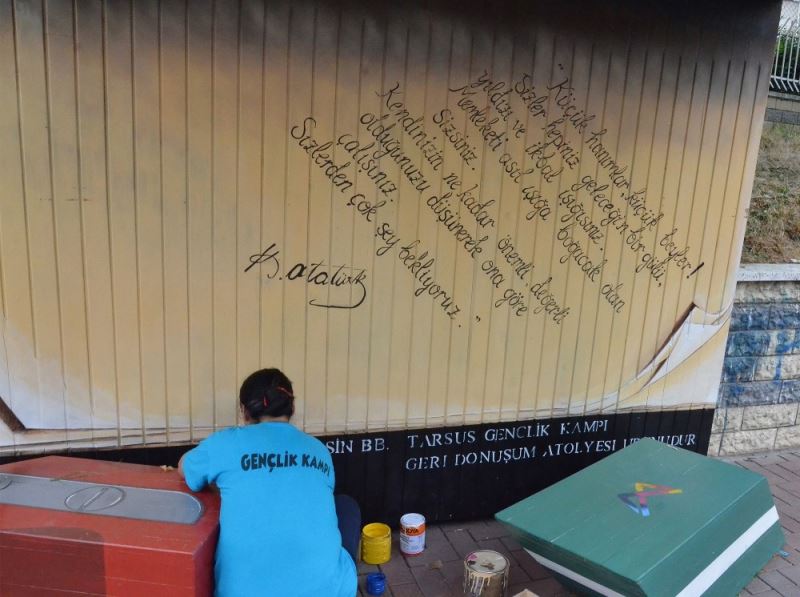 "Küçük hanımlar, küçük beyler!
Sizler hepiniz geleceğin bir gülü,
yıldızı ve ikbal ışığısınız.
Memleketi asıl ışığa boğacak olan
Sizsiniz.
Kendinizin ne kadar önemli, değerli
olduğunuzu düşünerek ona göre
çalışınız.
Sizlerden çok şey bekliyoruz."
K. atatürk
GENÇLİK KAMPI
SİN BB. TARSUS GENCLİK KAMPI
GERİ DONUŞUM ATOLYESİ URUNUDUR